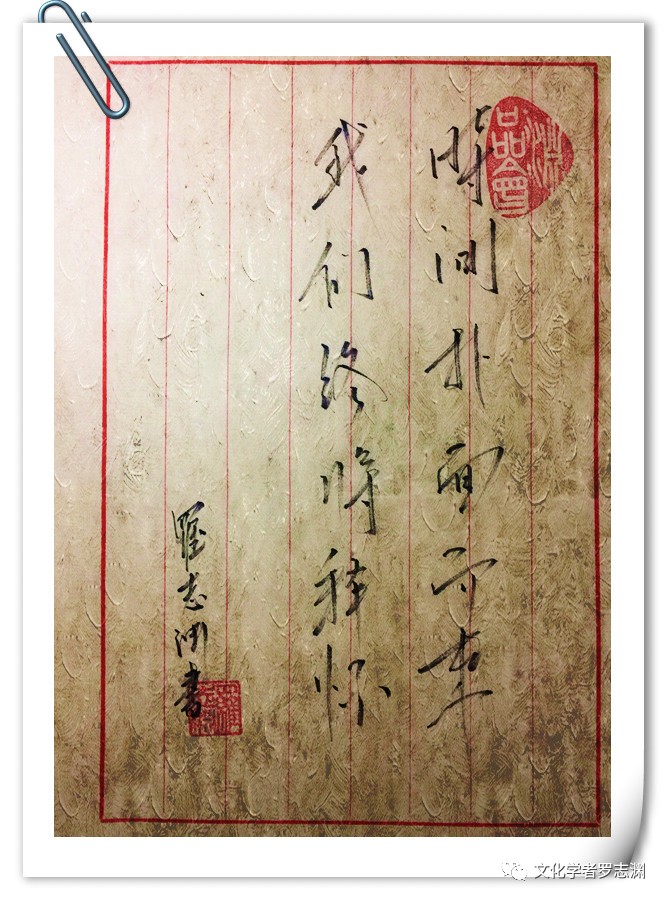 時间扑面而来
我们终将释怀
罗志渊书
文化学者罗志渊